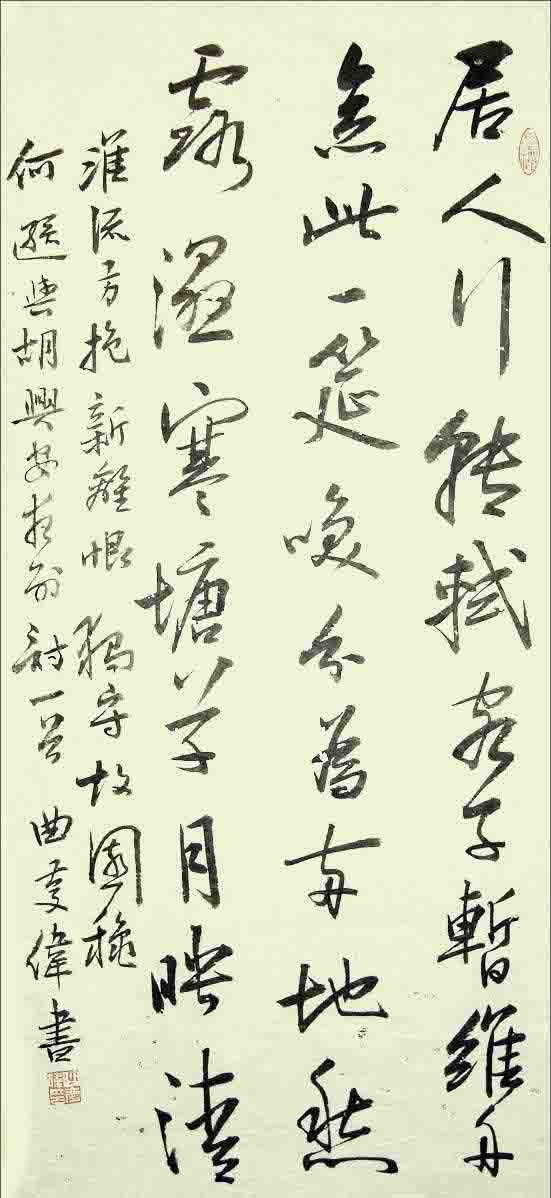 居人行轉軾客子暫維舟
念此一筵咲分為兩地愁
露濕寒塘草月映清
淮流方抱新離恨獨守故園秋
何遜與胡興安夜別詩一首 曲慶偉書